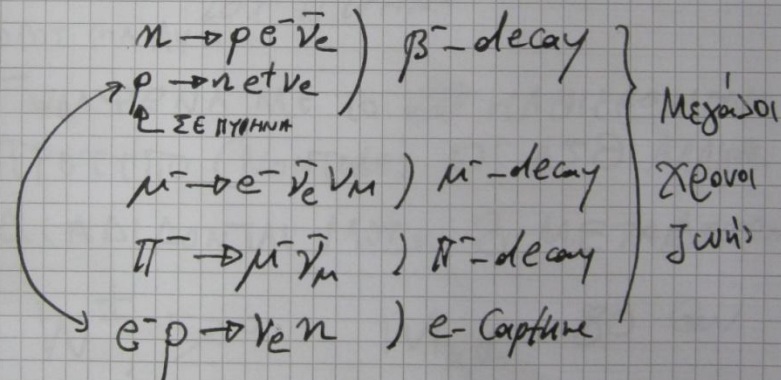 n → p e⁻ ν̄e ) β⁻-decay
p → n e⁺ νe
ΣΕ ΠΥΡΗΝΑ
μ⁻ → e⁻ ν̄e νμ ) μ⁻-decay
Π⁻ → μ⁻ ν̄μ ) Π⁻-decay
e⁻ p → νe n ) e-Capture
Μεγάλοι
χρονοι
ζωής